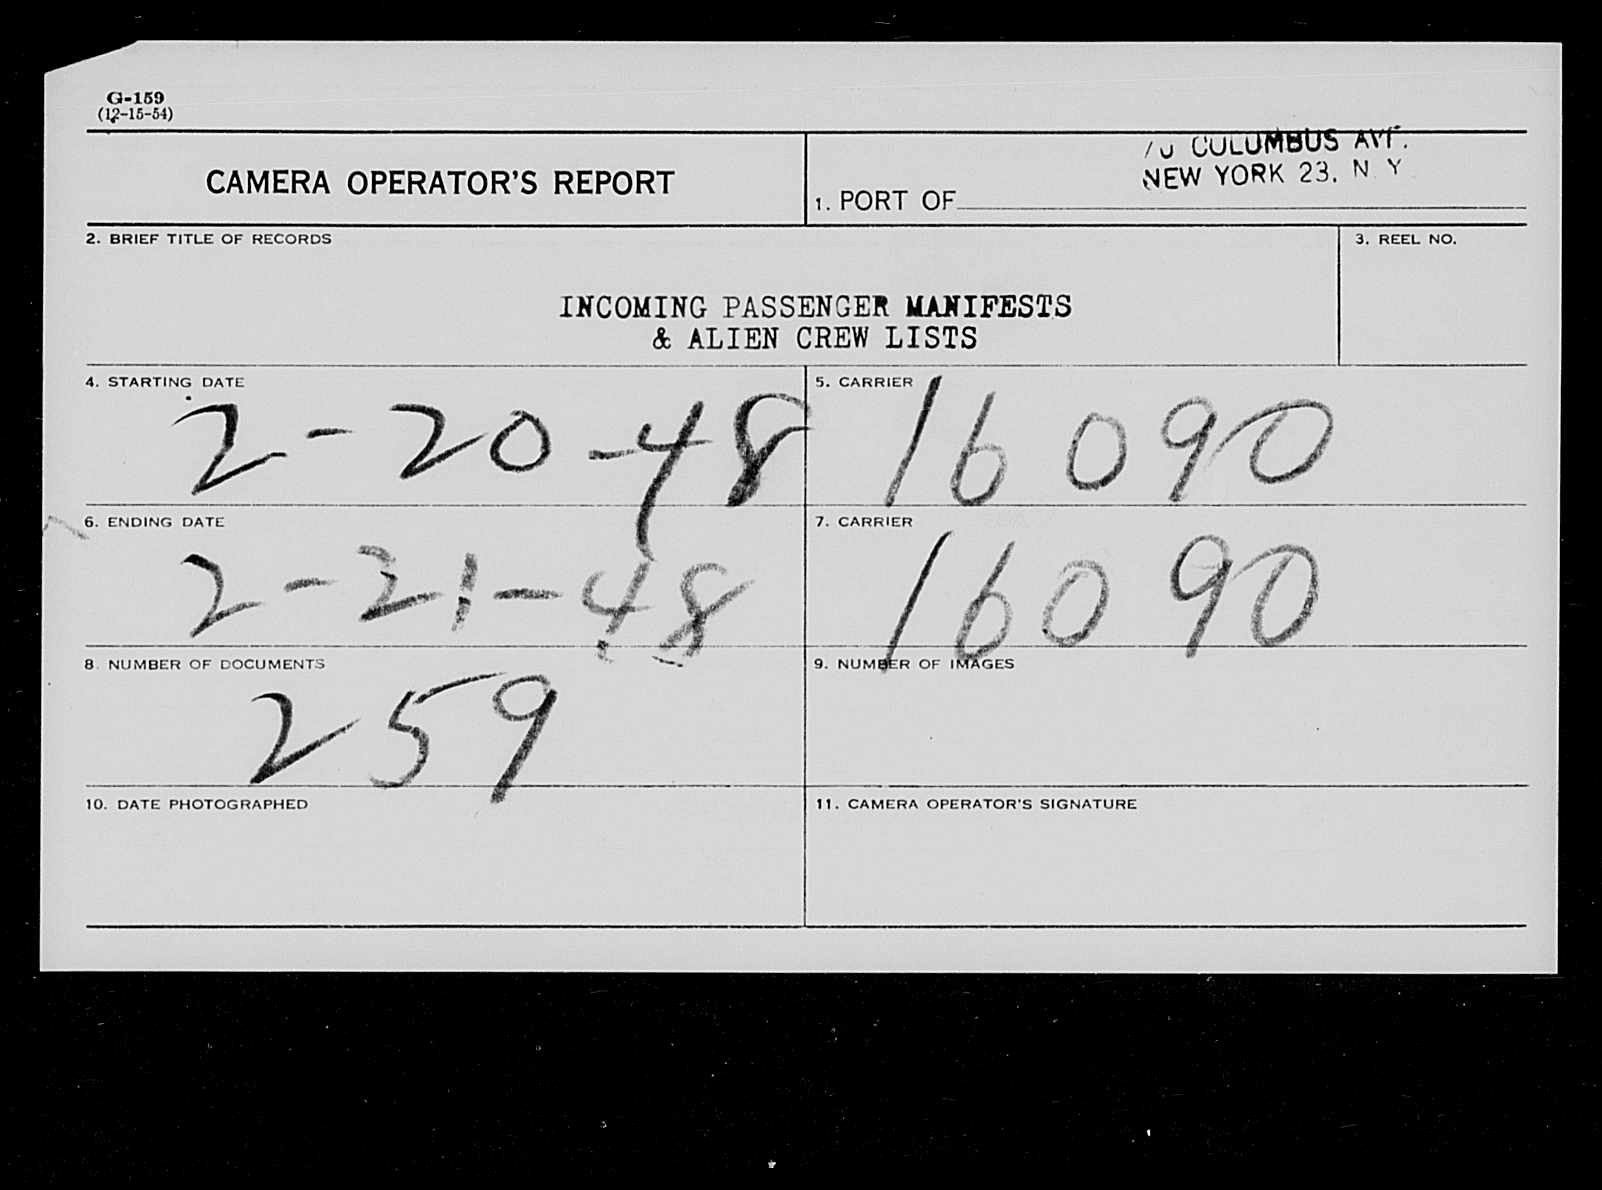 G-159
(12-15-54)
CAMERA OPERATOR'S REPORT
70 COLUMBUS AVE.
NEW YORK 23, N. Y.
1. PORT OF
2. BRIEF TITLE OF RECORDS
3. REEL NO.
INCOMING PASSENGER MANIFESTS
& ALIEN CREW LISTS
4. STARTING DATE
2-20-48
5. CARRIER
16090
6. ENDING DATE
2-21-48
7. CARRIER
16090
8. NUMBER OF DOCUMENTS
259
9. NUMBER OF IMAGES
10. DATE PHOTOGRAPHED
11. CAMERA OPERATOR'S SIGNATURE